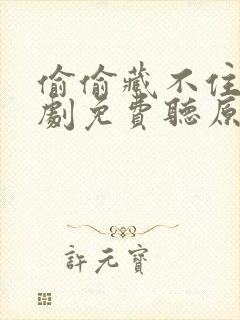 偷偷藏不住
劇免費聽原
許元寶